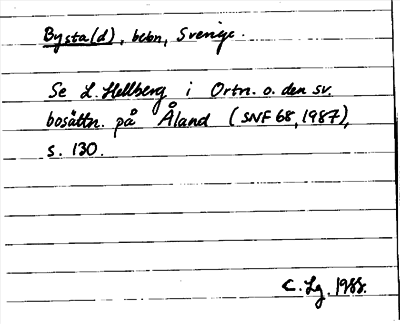 Bysta(d), bebn, Sverige.
Se L. Hellberg i Ortn. o. den sv.
bosättn. på Åland (SNF 68, 1987),
s. 130.
C. Lg. 1988.